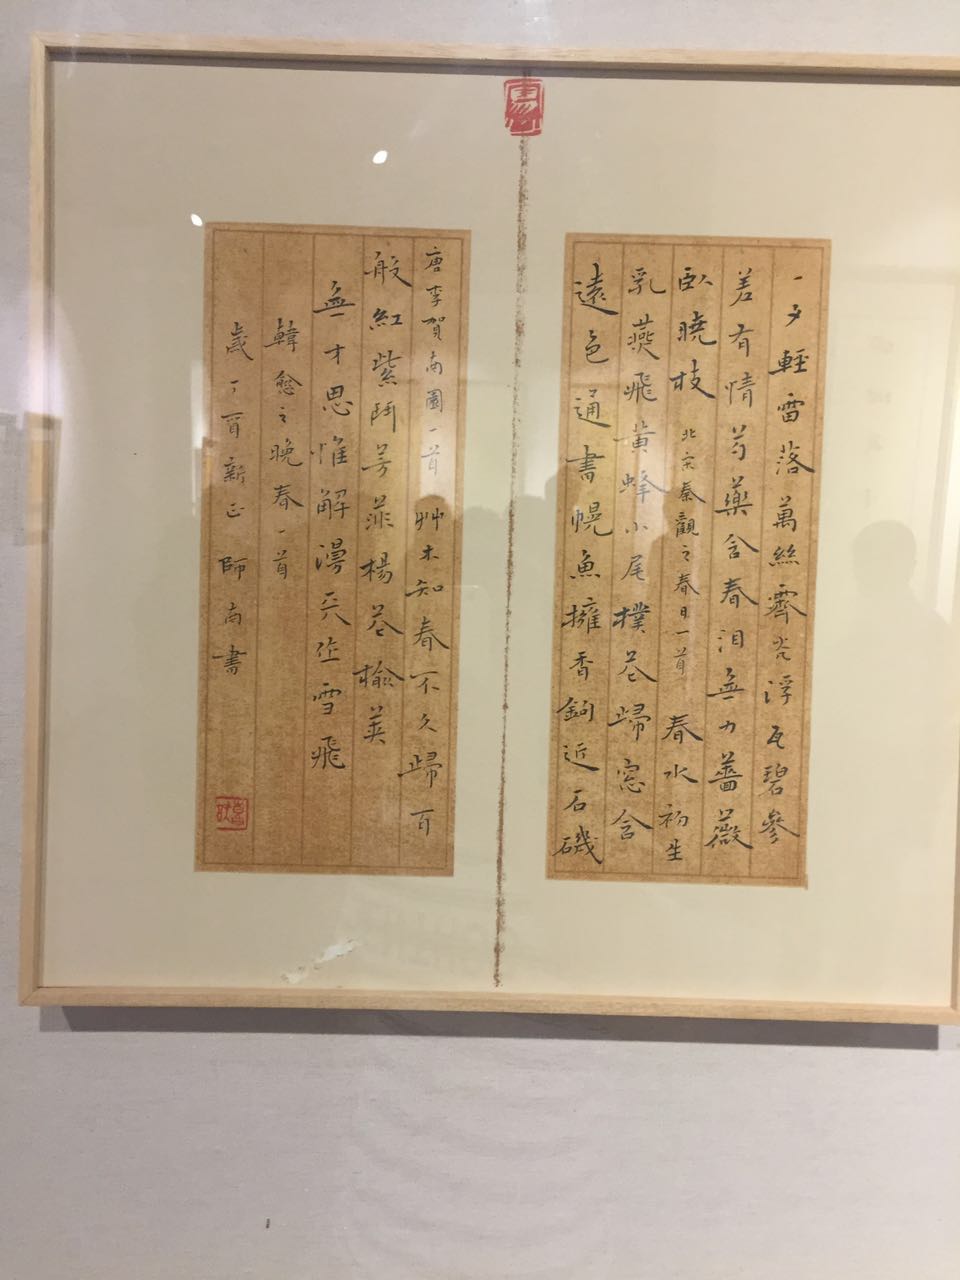 一夕輕雷落萬絲霽光浮瓦碧參
差有情芍藥含春淚無力薔薇
臥曉枝 北宋秦觀之春日一首 春水初生
乳燕飛黃蜂小尾撲花歸窓含
遠色通書幌魚擁香鉤近石磯
唐李賀南園一首 艸木知春不久歸百
般紅紫鬥芳菲楊花榆莢
無才思惟解漫天作雪飛
韓愈之晚春一首
歲丁酉新正師南書